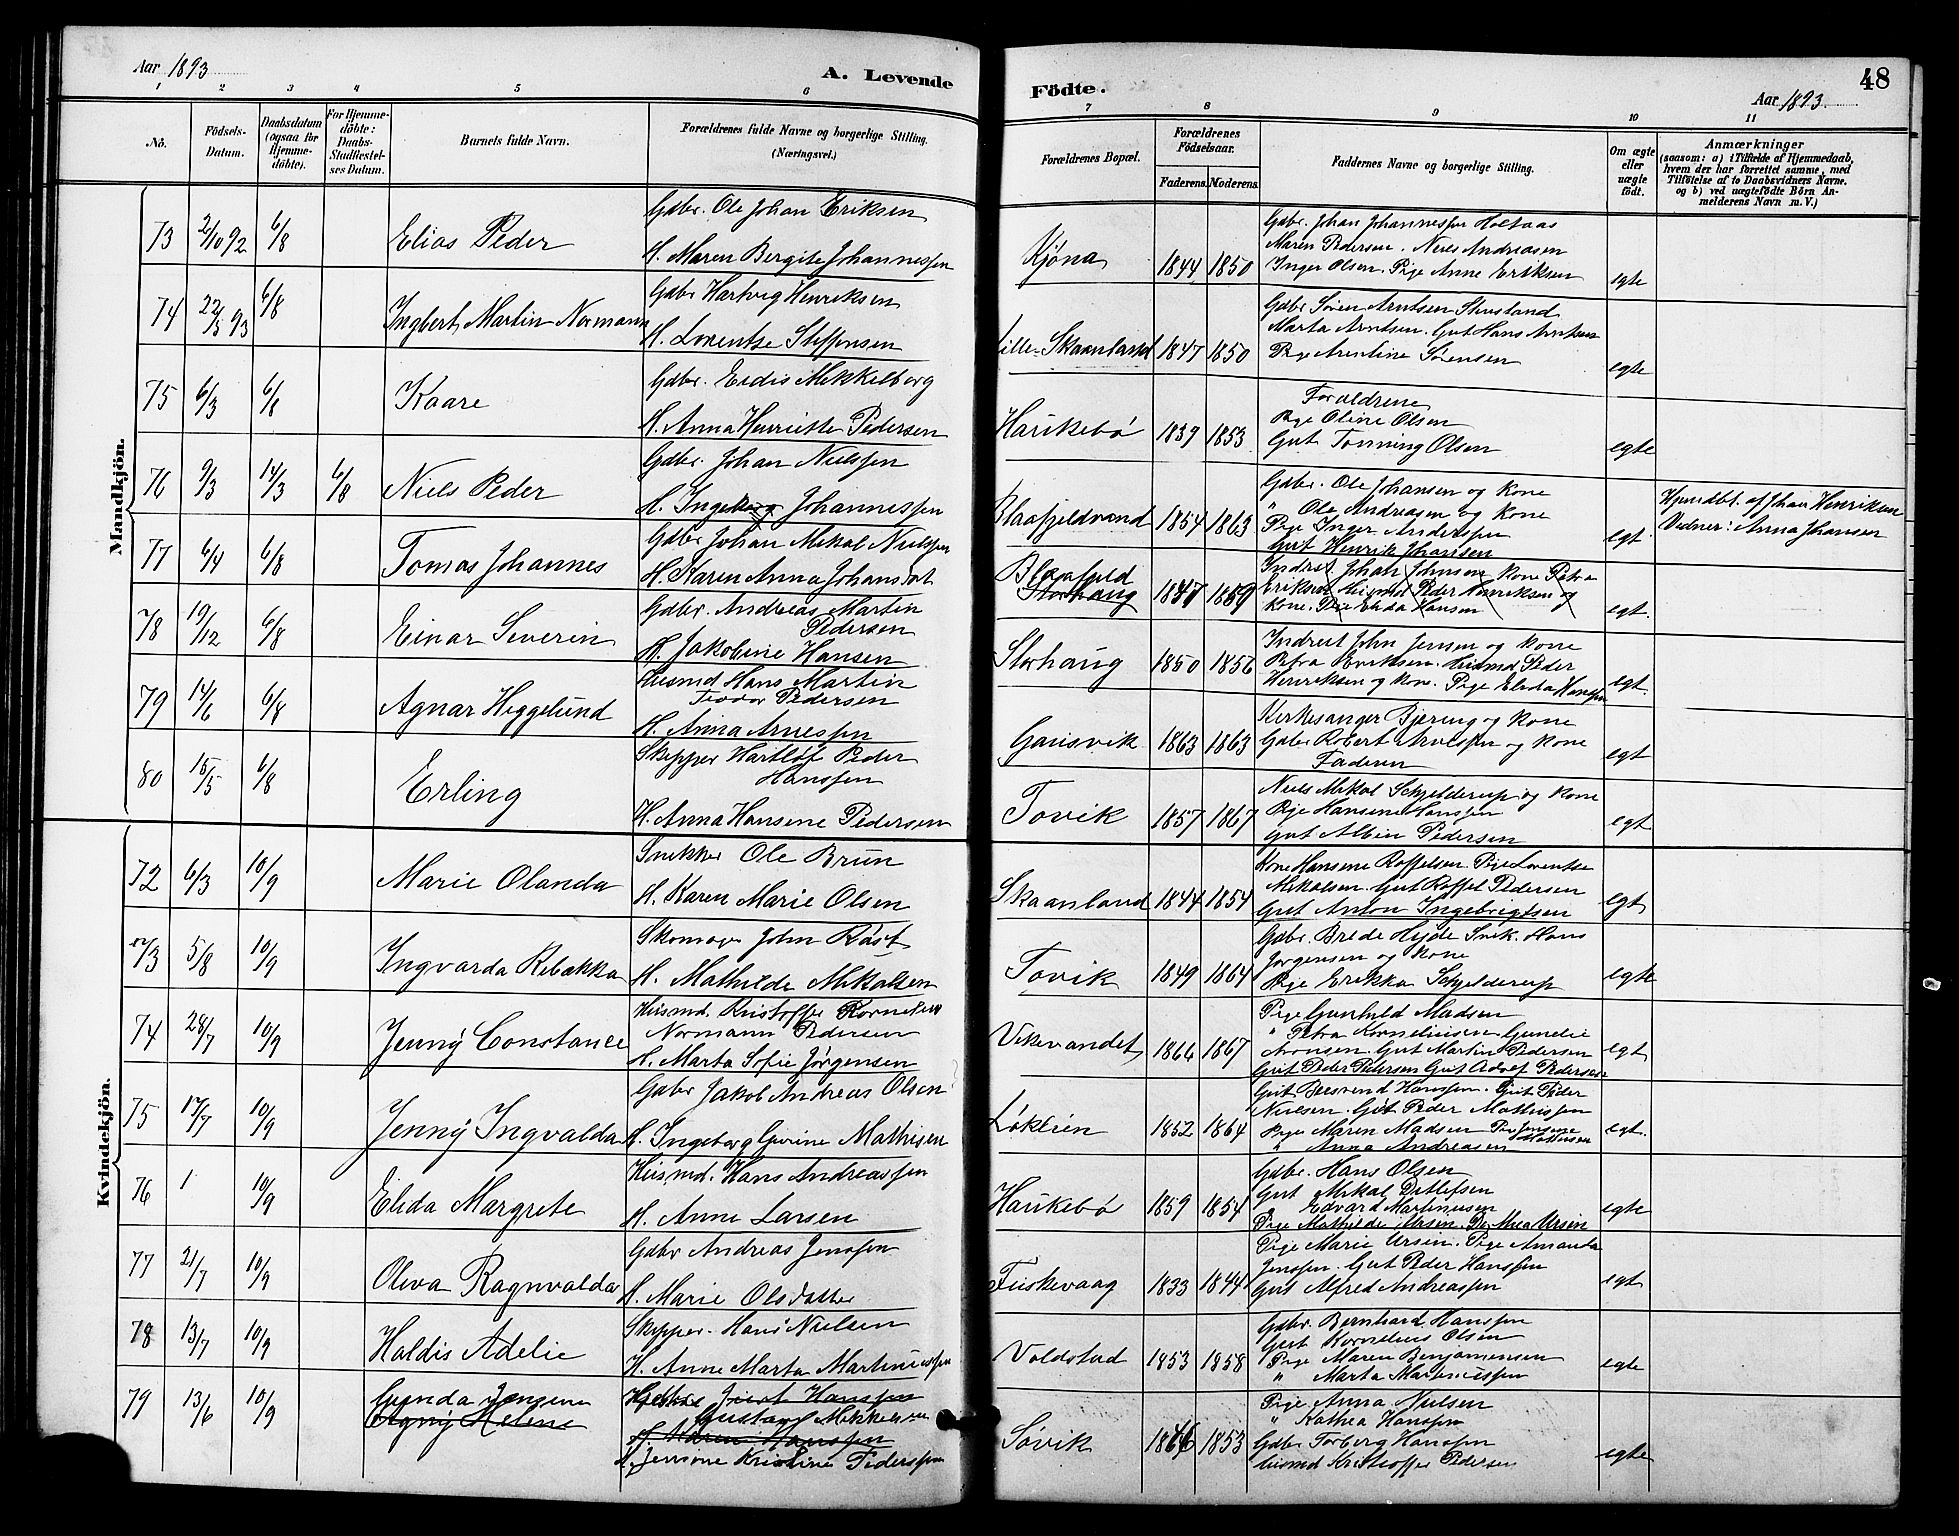 Aar 1893
A. Levende
Födte.
Aar 1893.
48
1 2 3 4 5 6
7 8 9 10 11
No.
Födsels-Datum.
Daabsdatum (ogsaa for Hjemme-döbte).
For Hjemme-döbte: Daabs-Stadfæstel-ses Datum.
Barnets fulde Navn.
Forældrenes fulde Navne og borgerlige Stilling. (Næringsvei.)
Forældrenes Bopæl.
Forældrenes Födselsaar.
Faderens. Moderens.
Faddernes Navne og borgerlige Stilling.
Om ægte eller uægte födt.
Anmærkninger
(saasom: a) i Tilfælde af Hjemmedaab, hvem der har forrettet samme, med Tilföielse af to Daabsvidners Navne. og b) ved uægtefödte Börn An-melderens Navn m. V.)
Mandkjön.
73 2/10 92 6/8 Elias Peder
Gdbr. Ole Johan Eriksen
H. Maren Bergite Johannessen
Kjøna 1844 1850
Gdbr. Johan Johannessen Holtaas
Maren Pedersen. Niels Andreasen
Inger Olsen. Pige Anne Eriksen
egte
74 22/3 93 6/8 Ingbert Martin Normann
Gdbr Hartvig Henriksen
H. Lorentse Steffensen
Lille-Skaanland 1847 1850
Gdbr Søren Arntsen
Marta Arntsen. Gut Hans Arntsen
Pige Arentine Sørensen
egte
75 6/3 6/8 Kaare
Gdbr. Eidis Mekkelborg
H. Anna Henriette Pedersen
Haukebø 1839 1853
Forældrene
Pige Oline Olsen
Gut Tonning Olsen
egte
76 9/3 14/3 6/8 Niels Peder
Gdbr. Johan Nielssen
H. Ingeborg Johannessen
Blaafjeldvand 1854 1863
Gdbr. Ole Johansen og Kone
" Ole Andreasen og Kone
Pige Inger Anderssen
Gut Henrik Johansen
egt.
Hjemdbt. af Johan Henriksen
Vidner: Anna Johansen
77 6/4 6/8 Tomas Johannes
Gdbr Johan Mikal Nielssen
H. Karen Anna Johansdat
Blaafjeld
Storhaug 1847 1859
Indrest Johan Jensen Kone Petra
Eriksen Husmd Peder Henriksen og
Kone. Pige Elida Hansen
egt.
78 19/12 6/8 Einar Severin
Gdbr. Andreas Martin
Pedersen
H. Jakobine Hansen
Storhaug 1850 1856
Indrest John Jensen og Kone
Petra Eriksen. Husmd Peder
Henriksen og Kone. Pige Elida Hanssen
egt.
79 14/6 6/8 Agnar Heggelund
Husmd Hans Martin
Teodor Pedersen
H. Anna Arnessen
Gausvik 1863 1863
Kirkesanger Bjering og Kone
Gdbr Robert Arnessen og Kone
Faderen
egt
80 15/5 6/8 Erling
Skipper Hartløf Peder
Hanssen
H. Anna Hansene Pedersen
Tovik 1857 1867
Niels Mikal Schjelderup og Kone
Pige Hansene Hanssen
Gut Albin Pedersen
egt
Kvindekjön.
72 6/3 10/9 Marie Olanda
Snikker Ole Brun
H. Karen Marie Olsen
Skaanland 1844 1854
Kone Hansene Roffelsen. Pige Lorentse
Mikalsen. Gut Roffel Pedersen
Gut Anton Ingebrigtsen
egt
73 5/8 10/9 Ingvarda Rebekka
Skomager John Røst
H. Mathilde Mikalsen
Tovik 1849 1864
Gdbr. Brede Hyde Snik. Hans
Jørgensen og Kone
Pige Erikka Schjelderup
egte
74 28/7 10/9 Jenny Constance
Husmd. Kristoffer Kornelius
Normann Pedersen
H. Marta Sofie Jørgensen
Vikevandet 1866 1867
Pige Gunhild Madsen
" Petra Korneliusen Gunelie
Aronsen. Gut Martin Pedersen
Gut Peder Pedersen Gut Adolf Pedersen
egt
75 17/7 10/9 Jenny Ingvalda
Gdbr Jakob Andreas Olsen
H. Ingeborg Gurine Mathisen
Løklien 1852 1864
Gut Berevend Hanssen. Gut Peder
Nielsen. Gut Peder Mathissen
Pige Maren Madsen Pig Jensine Mathisen
" Anna Andreasen
egt.
76 1 10/9 Elida Margrete
Husmd. Hans Andreassen
H. Anne Larsen
Haukebø 1859 1854
Gdbr. Hans Olsen
Gut Mikal Ditlefsen
" Edvard Martinusen
Pige Mathilde Ursin. Do Mina Ursin
egte
77 21/7 10/9 Oleva Ragnvalda
Gdbr Andreas Jenssen
H. Marie Olsdatter
Fiskevaag 1833 1844
Pige Marie Ursin. Pige Amanda
Jenssen. Gut Peder Hanssen
Gut Alfred Andreassen
egt
78 13/7 10/9 Haldis Adelie
Skipper. Hans Nielsen
H. Anne Marta Martinussen
Voldstad 1853 1858
Gdbr. Bernhard Hanssen
Gut Kornelius Olsen
Pige Maren Benjaminsen
" Marta Martinussen
egte
79 13/6 10/9 Gunda Jensine
Agny Helene
Joert Hanssen
Gustav Mikkelsen
H. Karen Hanssen
H. Jensine Kristine Pederssen
Søvik 1846 1853
Pige Anna Nielsen
" Kathea Hanssen
Gdbr Torberg Hanssen
Husmd Kristoffer Pedersen
egte